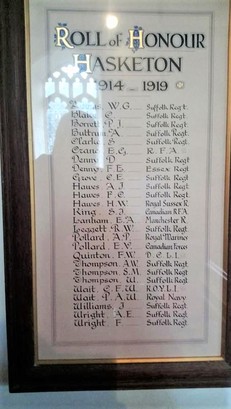 Roll of Honour
Hasketon
1914 - 1919
W.G. Suffolk Regt
C Suffolk Regt
P.J Suffolk Regt
Buttrum A Suffolk Regt
Clarke S Suffolk Regt
Crane E.G. R.F.A
Denny D Suffolk Regt
Denny F.E Essex Regt
Grove C.E Suffolk Regt
Hawes A J Suffolk Regt
Hawes F.C Suffolk Regt
Hawes H.W Royal Sussex R
King S.J Canadian R.F.A
Lanham E.A Manchester R
Leggett R.W Suffolk Regt
Pollard A.P Royal Marines
Pollard E.V. Canadian Forces
Quinton F.W D.C.L.I.
Thompson A.W. Suffolk Regt
Thompson S.M Suffolk Regt
Thompson W Suffolk Regt
Wait C.F.W K.O.Y.L.I
Wait P.A.W Royal Navy
Williams J Suffolk Regt
Wright A.E Suffolk Regt
Wright F Suffolk Regt